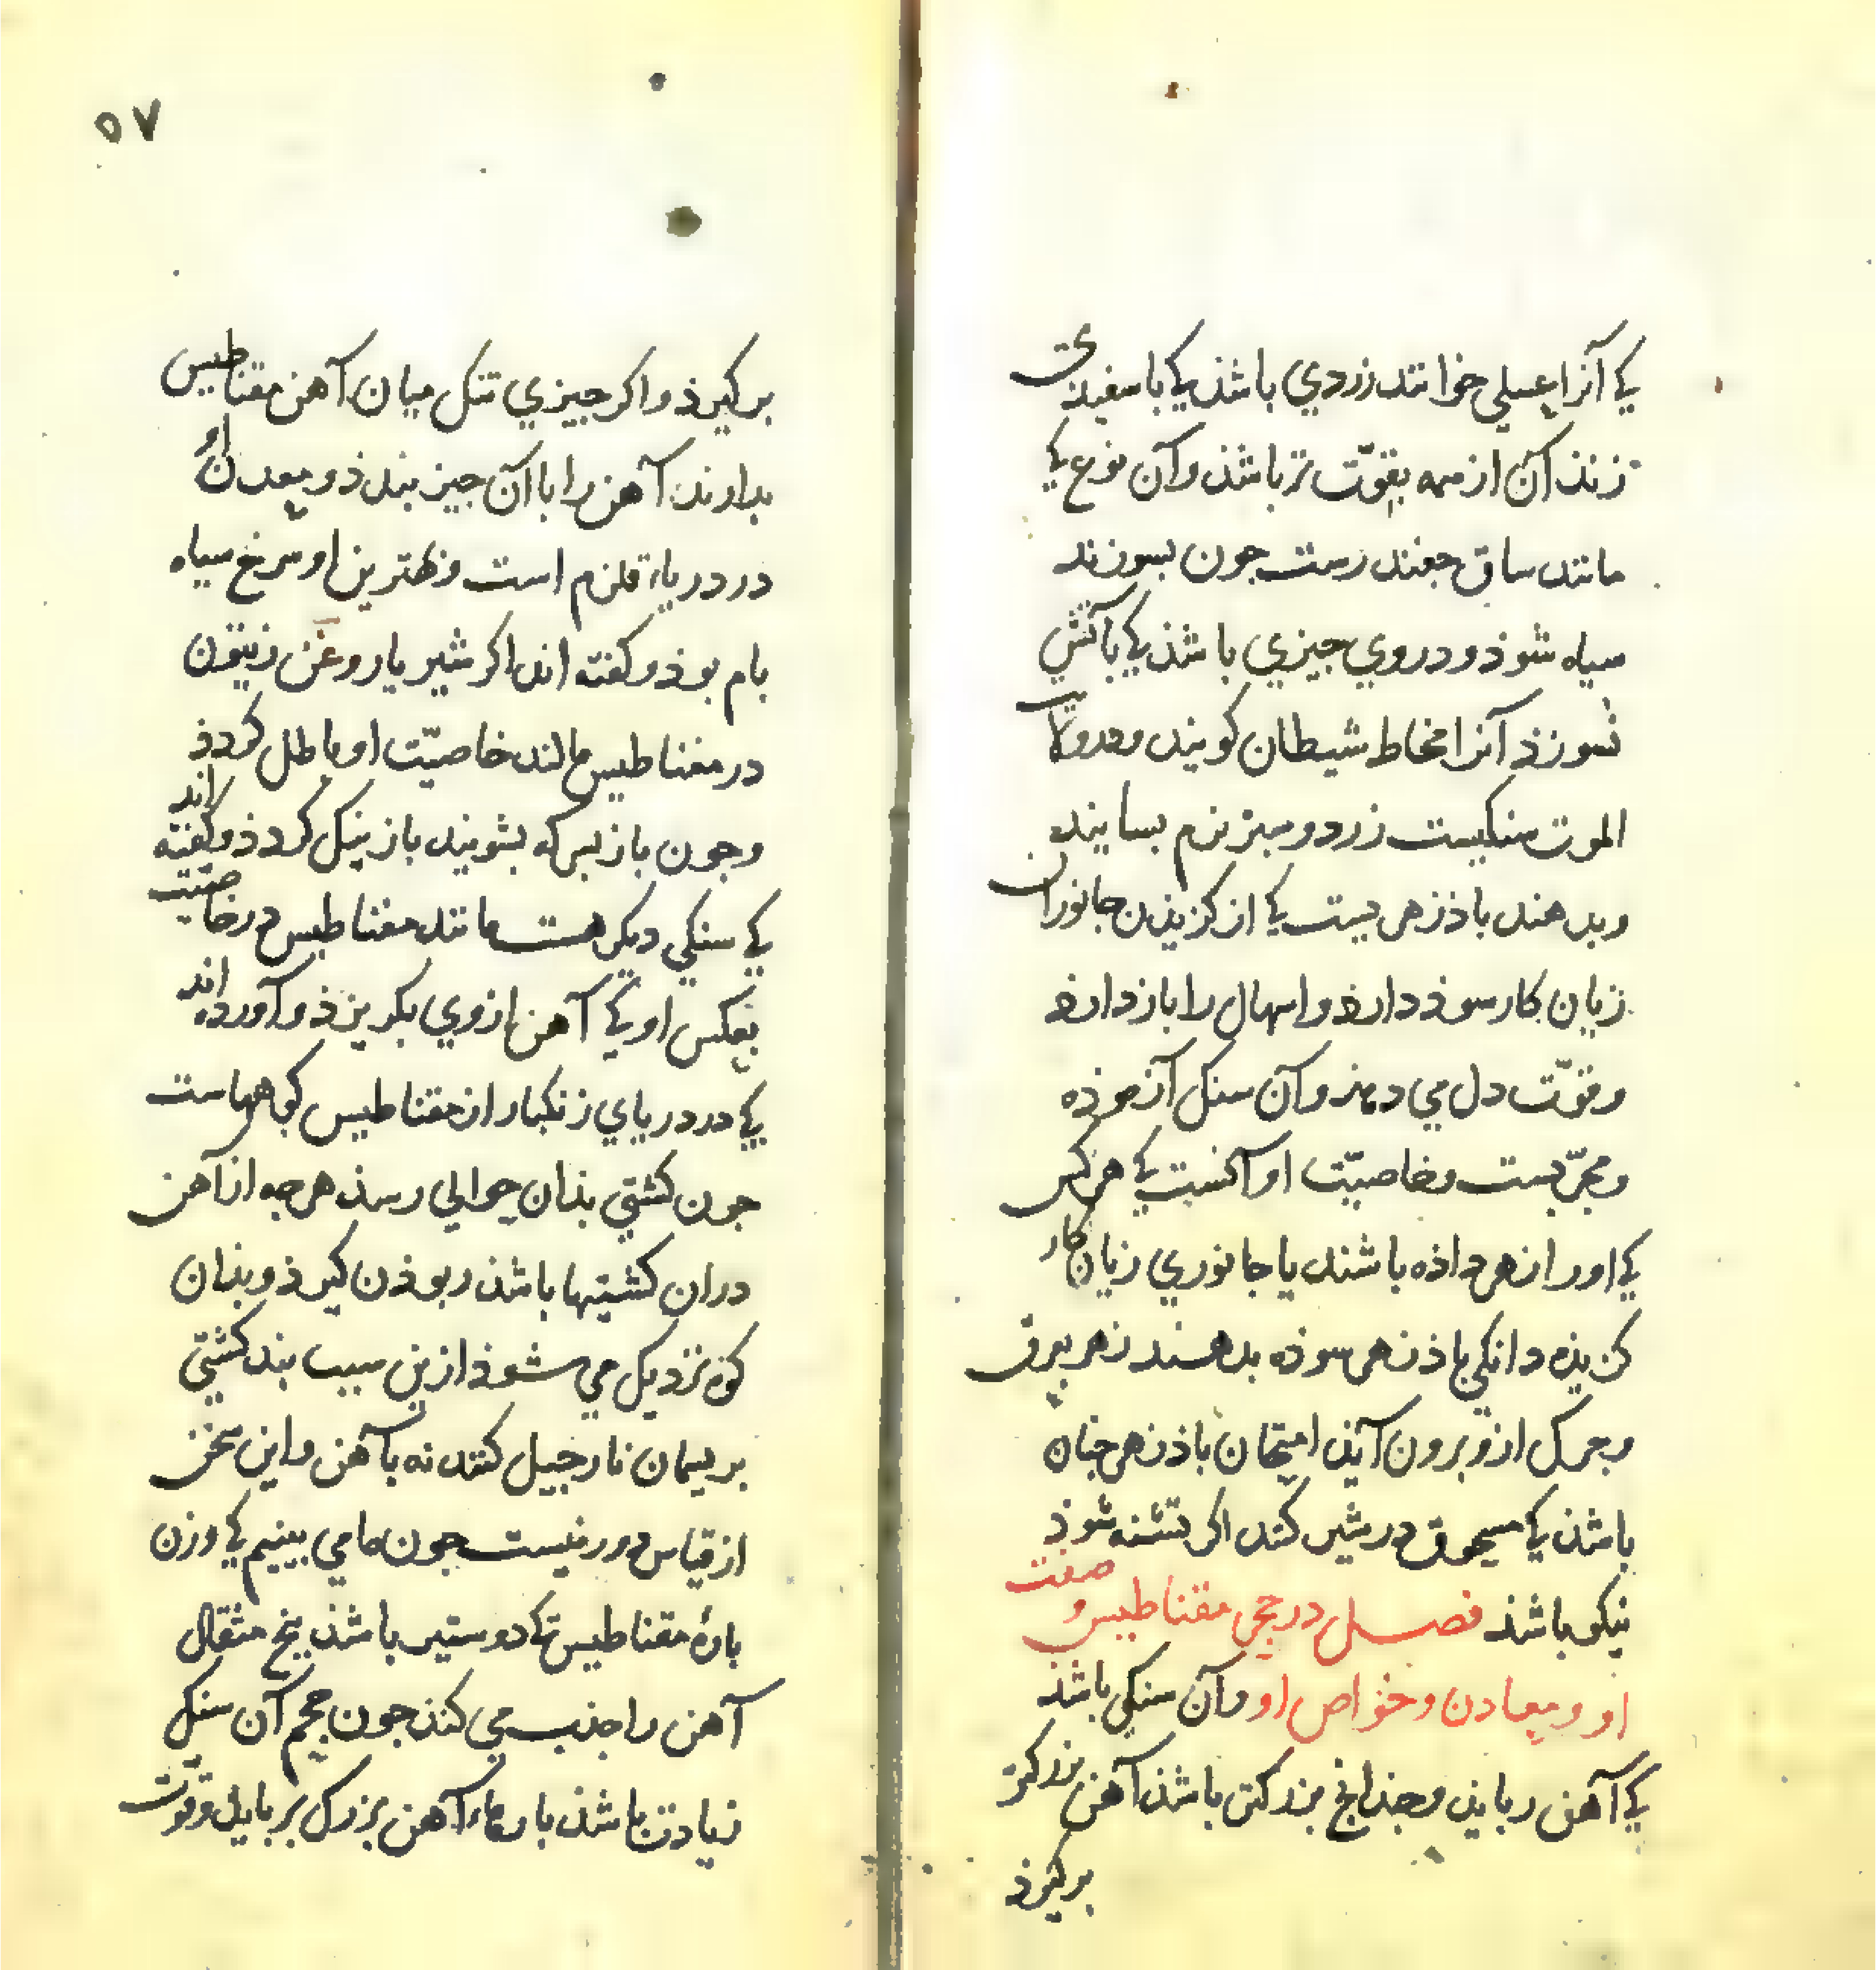 کي آنرا عسلي خوانند زردي باشذ کي با سفیدي
زنذ آن از همه بقوّت تر باشذ وآن نوع کي
مانند ساق جغندرست جون بسوزند
سیاه شوذ و در وي جیزي باشذ کي بآتش
نسوزذ آنرا مخاط شیطان کویند
الموت سنکیست زرد و سبز نرم بسایند
وبدهند باذزهریست کي از کزیذن جانوران
زیان کار سوذ دارذ واسهال را باز دارذ
وقوّت دل مي دهذ وآن سنک آزموذه
ومجرّبست وخاصیّت او آنست کي هرکس
کي اورا زهر داذه باشند یا جانوري زیان کار
کزیذه دانکي باذزهر سوذه بدهند زهر بعرق
وجرک ازو برون آیذ امتحان باذزهر جنان
باشذ کي مسحوق در شیر کنند اکر بسته شوذ
نیکو باشذ فصل در حجر مقناطیس و صفت
او ومعادن وخواص او وآن سنکي باشذ
کي آهن ربایذ وجندانج بزرکتر باشذ آهن بزرکتر
برکیرذ
٥٧
برکیرذ واکر جیزي تنک میان آهن مقناطیس
بدارند آهن را با آن جیز بندذ ومعدن او
در دریاء قلزم است وبهترین او سرخ سیاه
بام بوذ وکفته اند اکر شیر یا روغن زیتون
در مغناطیس مالند خاصیّت او باطل کردذ
وجون باز بسرکه بشویند باز نیک کردذ وکفته اند
کي سنکي دیکر هست مانند مغناطیس در خاصیّت
بعکس او کي آهن از وي بکریزذ وآورده اند
کي در دریاي زنکبار از مقناطیس کوهاست
جون کشتي بذان حوالي رسذ هرجه از آهن
دران کشتیها باشذ ربوذن کیرذ وبذان
کوه نزدیک مي شوذ ازین سبب بند کشتي
بریسمان نارجیل کنند نه بآهن واین سخن
از قیاس دور نیست جون ما مي بینیم کي وزن
بارۀ مقناطیس کي دو ستیر باشذ بنج مثقال
آهن را جذب مي کند جون حجم آن سنک
زیادت باشذ بارهاء آهن بزرک بربایذ وقوّت